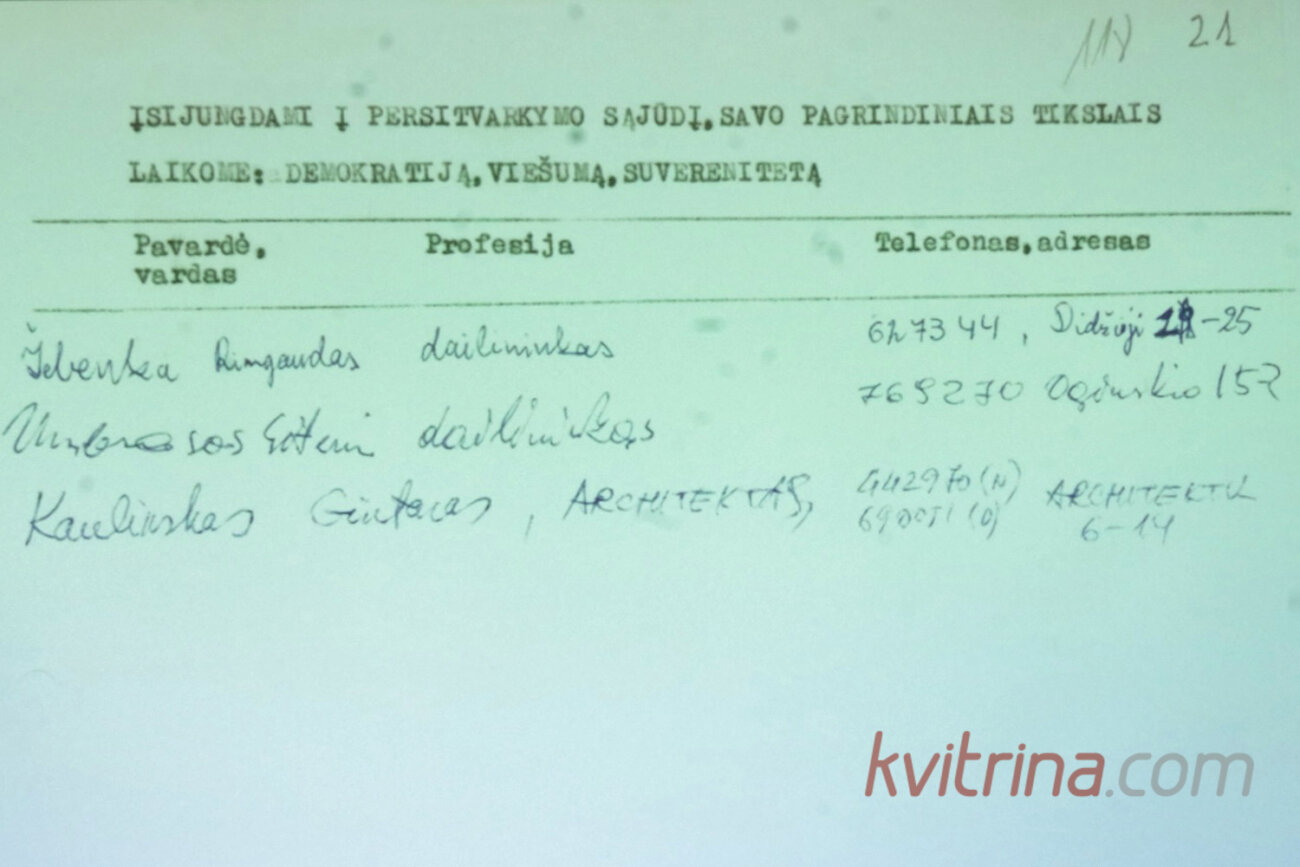 118 21
ĮSIJUNGDAMI Į PERSITVARKYMO SĄJŪDĮ, SAVO PAGRINDINIAIS TIKSLAIS
LAIKOME: DEMOKRATIJĄ, VIEŠUMĄ, SUVERENITETĄ
Pavardė, Profesija Telefonas, adresas
vardas
Žebenka Rimgaudas dailininkas 627344, Didžioji -25
dailininkas 769270 Oginskio 15-2
Kaulinskas Gintaras, ARCHITEKTAS, 442970 (N) ARCHITEKTŲ
(D) 6-14
kvitrina.com